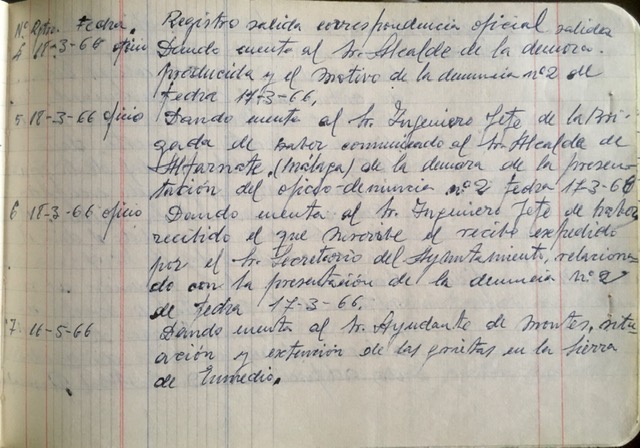 Nº Rptro. Fedra. Registro salida correspondencia oficial salidas
4 18-3-66 oficio Dando cuenta al Sr. Alcalde de la demora.
producida y el motivo de la denuncia nº2 de
fedra 17-3-66,
5 18-3-66 oficio Dando cuenta al Sr. Ingeniero Jefe de la Bri-
gada de haber comunicado al Sr. Alcalde de
Alfarnate, (Málaga) de la demora de la presen-
tación del oficio-denuncia nº2 fedra 17-3-66
6 18-3-66 oficio Dando cuenta al Sr. Ingeniero Jefe de haber
recibido el que suscribe el recibo expedido
por el Sr. Secretario del Ayuntamiento, relaciona-
do con la presentación de la denuncia nº2
de fedra 17-3-66,
7 16-5-66 Dando cuenta al Sr. Ayudante de Montes, situ-
ación y extención de las grietas en la Sierra
de Enmedio.